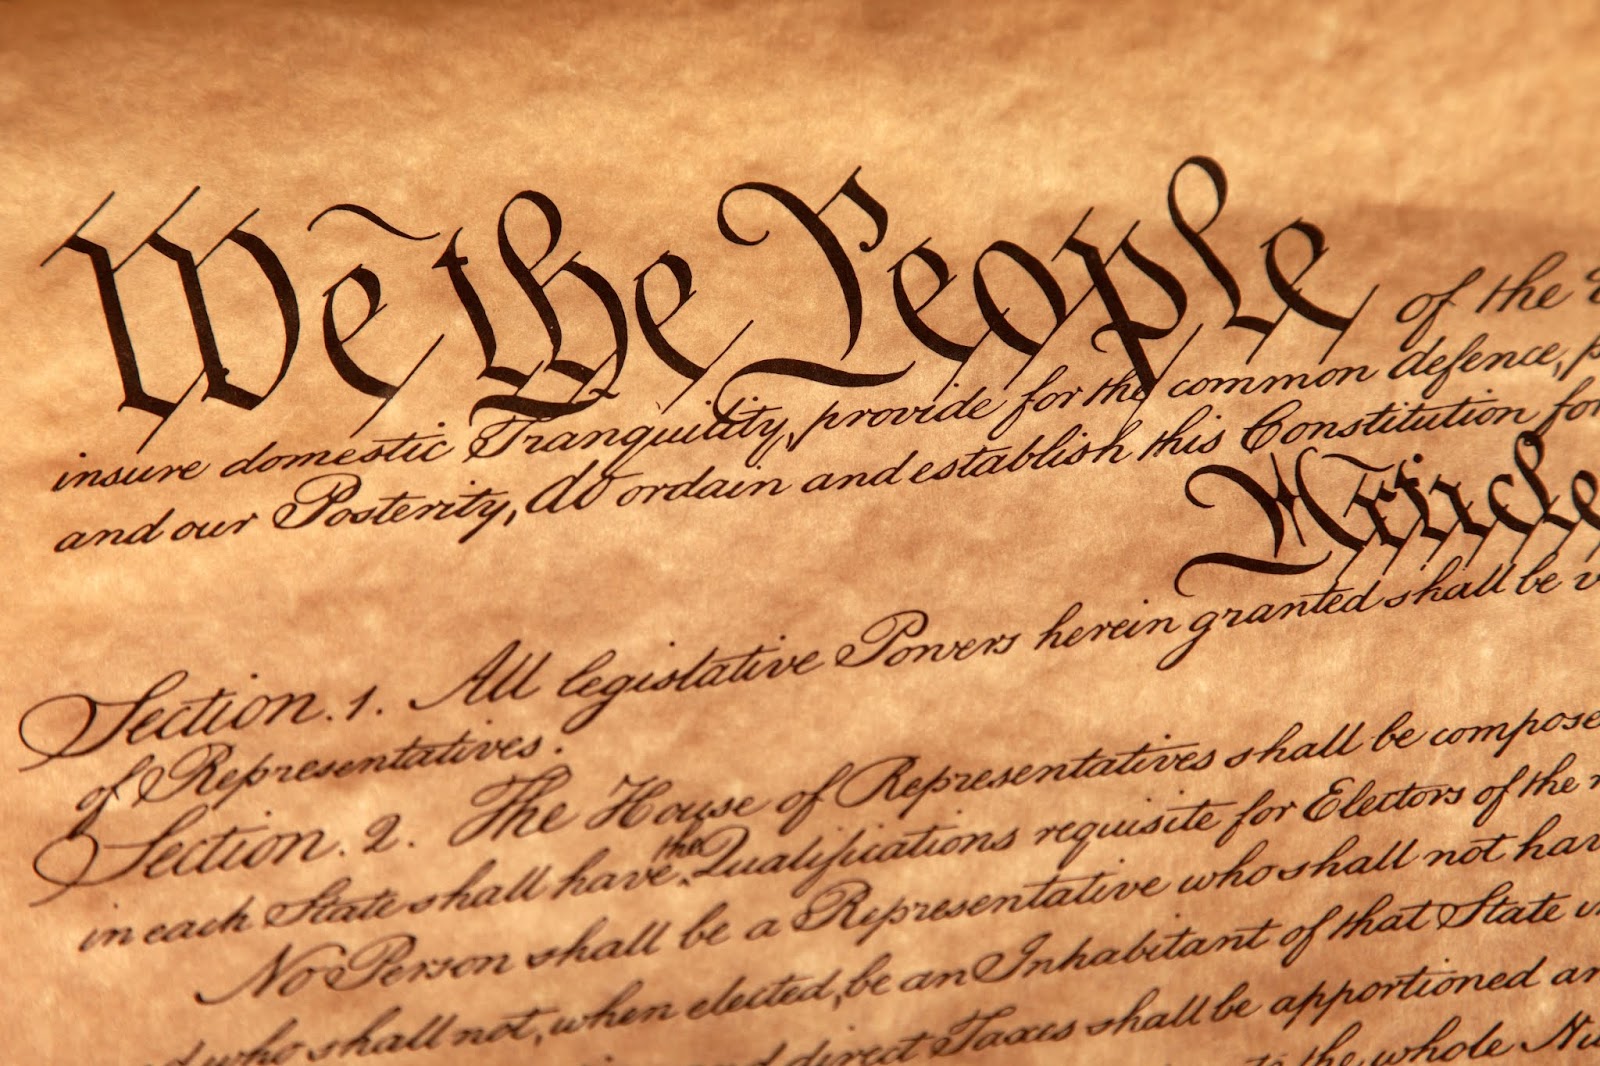 We the People of the
insure domestic Tranquility, provide for the common defence,
and our Posterity, do ordain and establish this Constitution for
Article
Section. 1. All legislative Powers herein granted shall be
of Representatives.
Section. 2. The House of Representatives shall be compose
the
in each State shall have Qualifications requisite for Electors of the
No Person shall be a Representative who shall not hav
who shall not, when elected, be an Inhabitant of that State
direct Taxes shall be apportioned
the whole